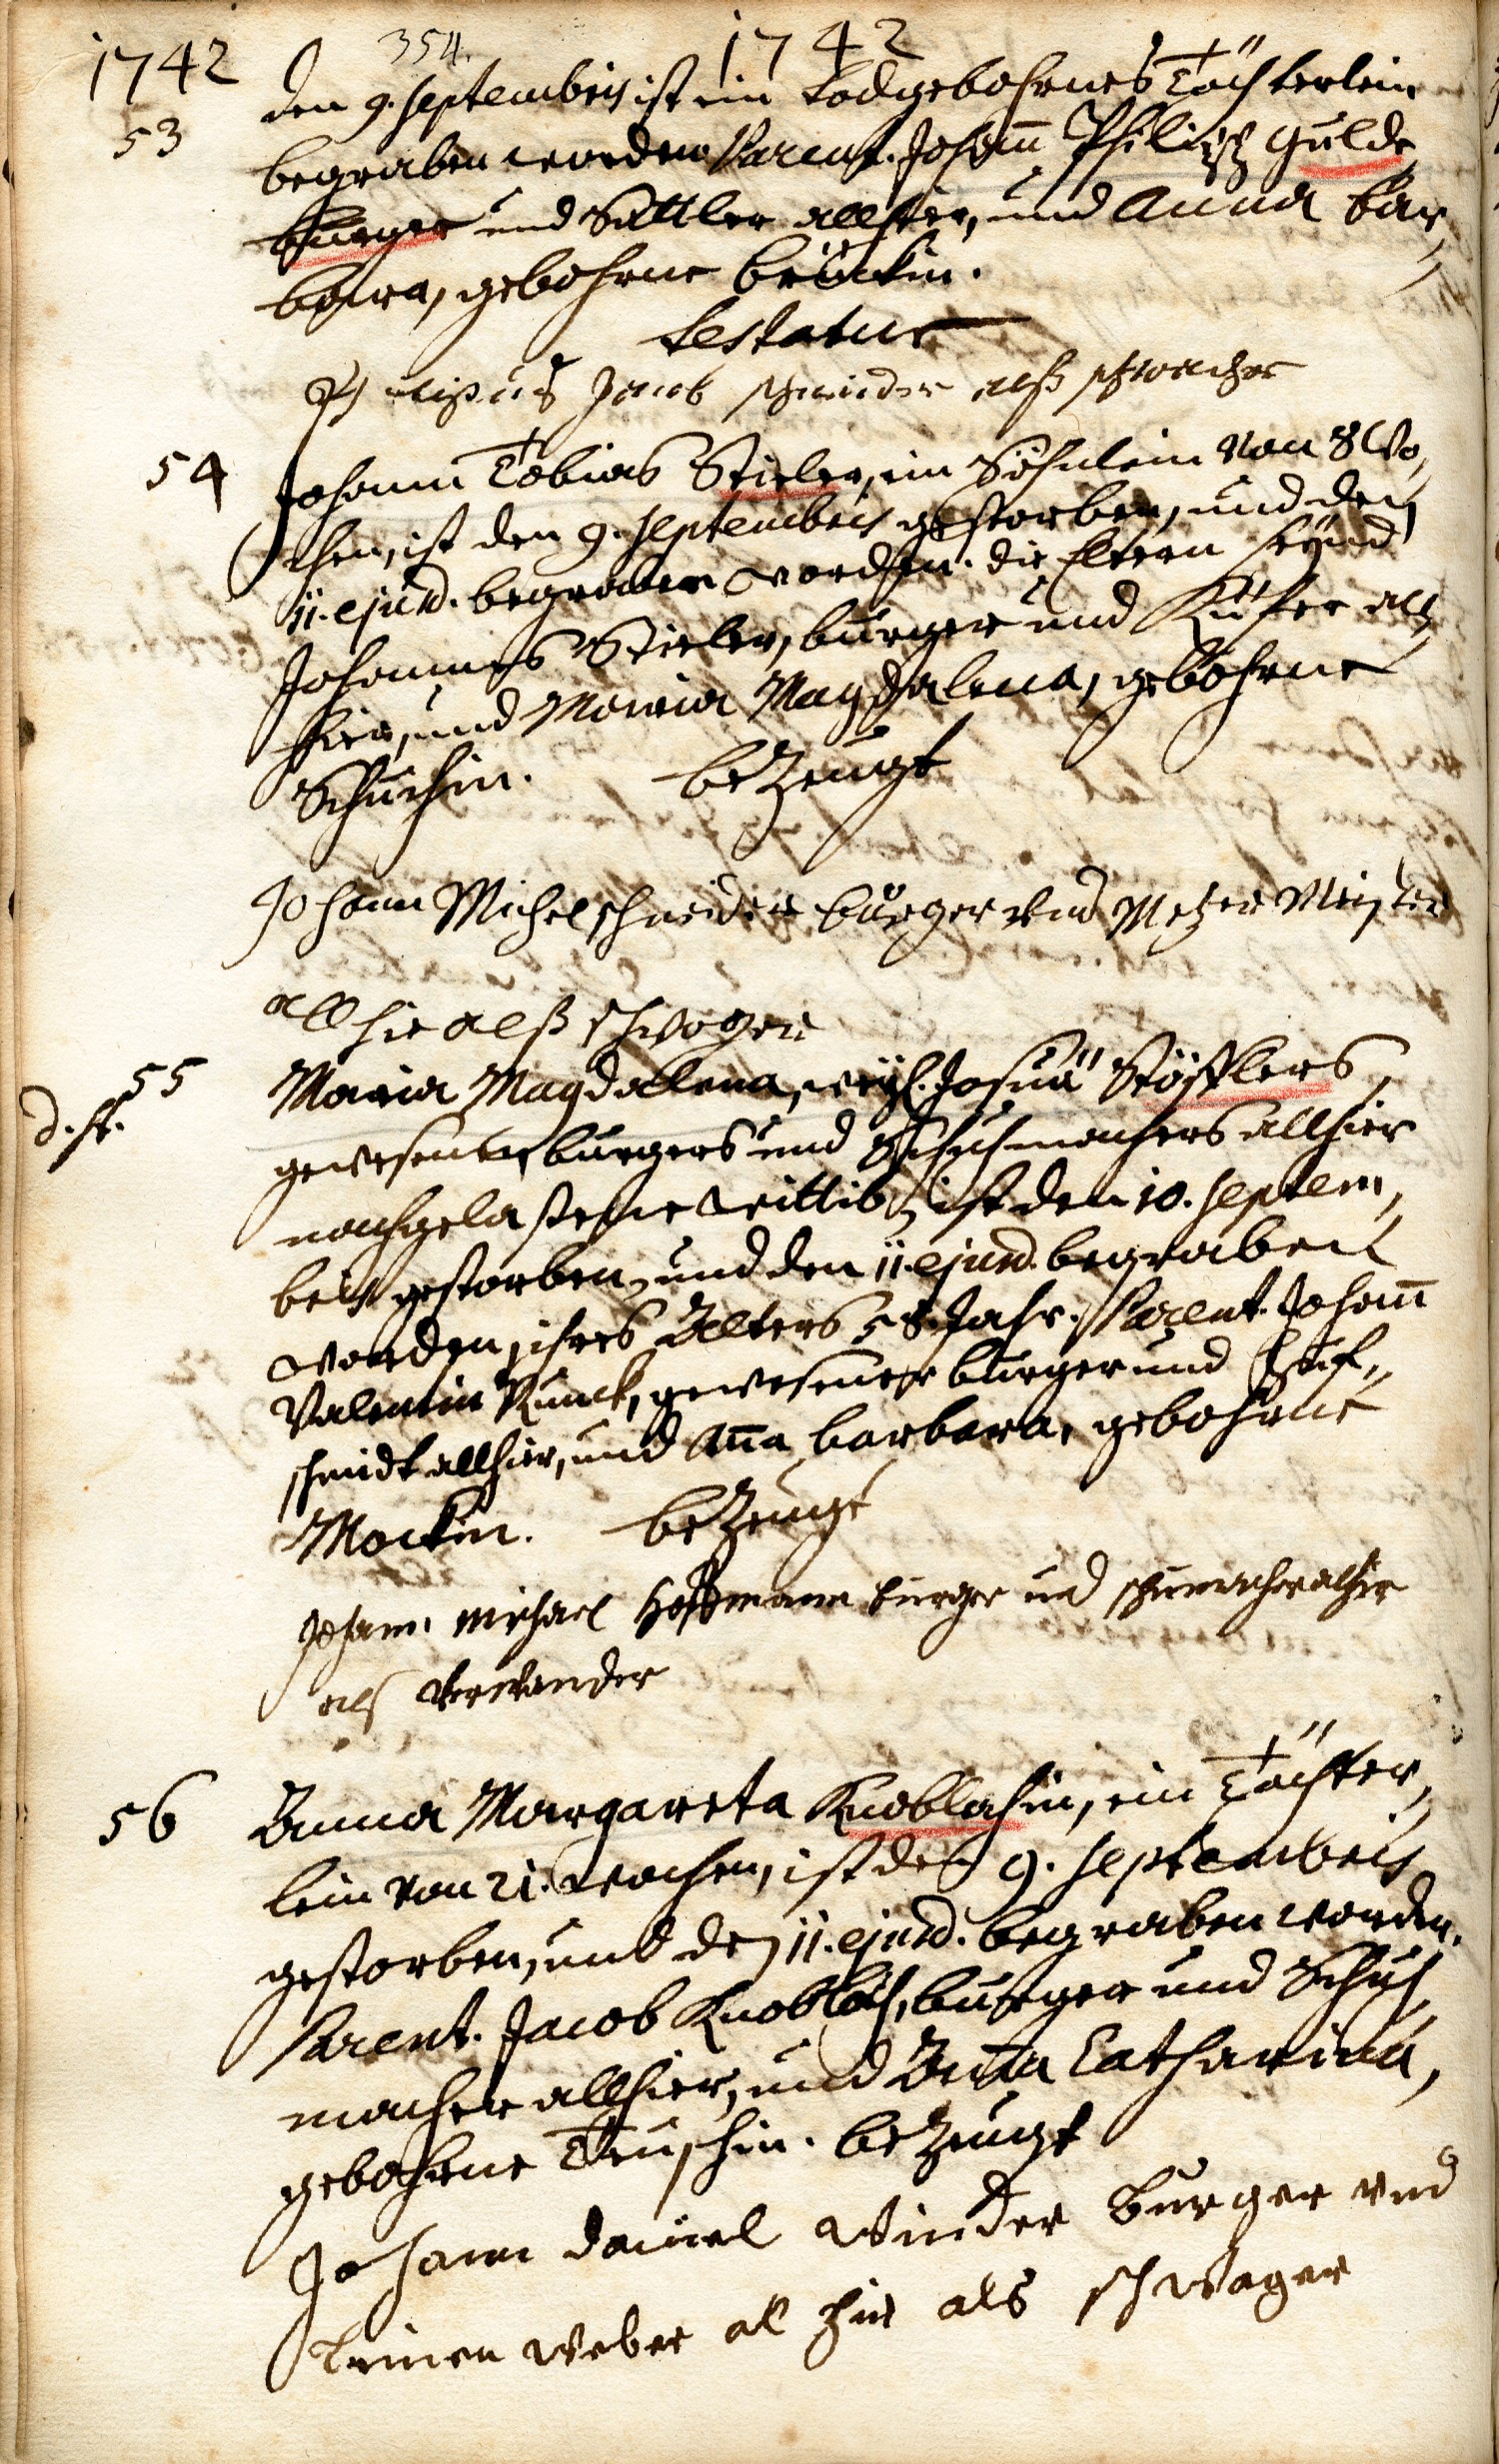 1742 354. 1742
53 den 9. Septembris ist ein todgebohrnes Töchterlein
begraben worden Parent. Johann Philipp Gulde
burger und Sattler allhier, und Anna Bar,
bara, gebohrne Bröckin.
testatur
Philipus Jacob schneider alß schwacher
54 Johann Tobias Stieler, ein Söhnlein von 8 Wo,
chen, ist den 9. Septembris gestorben, und den
11. ejusd. begraben worden. die Eltern seynd
Johannes Stieler, burger und Küfer all,
hier, und Maria Magdalena, gebohrne
Schuchin. bezeugt
Johann Michel schneider burger und Metzer Meister
allhie alß schwoger
55 Maria Magdalena, weyl. Josuä Stöfflers,
d. st. gewesenen burgers und Schuhmachers allhier
nachgelaßene Wittib, ist den 10. Septem,
bris gestorben, und den 11. ejusd. begraben
worden, ihres Alters 58 Jahr. Parent. Johann
Valentin Kunck, gewesener burger und Huf,,
schmidt allhier, und Anna Barbara, gebohrne
Mockin. bezeugt
Johann Michael Hoffmann burger und schumacher alhier
alß verwander
56 Anna Margareta Knoblochin, ein Töchter,
lein von 21. Wochen, ist den 9. Septembris
gestorben, und den 11. ejusd. begraben worden.
Parent. Jacob Knobloch, burger und Schuh
macher allhier, und Anna Catharina,
gebohrne Teuschin. bezeugt
Johann daniel Winder burger vnd
leinen weber al hie als schwager